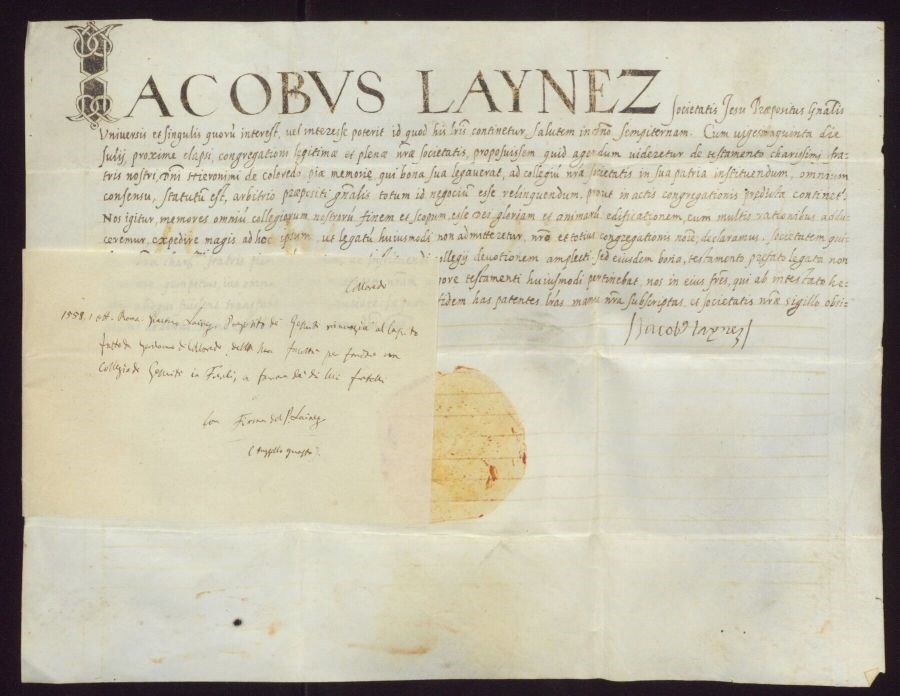 IACOBVS LAYNEZ Societatis Jesu Præpositus Gñalis
Vniuersis et singulis quorū interest, uel interesse poterit id quod his l͞ris continetur, Salutem in c͞hro Sempiternam. Cum uigesimaquinta die
Julij proxime elapsi, congregationi legitimæ et plenæ n͞ræ societatis, proposuissem quid agendum uideretur de testamento charissimi fra-
tris nostri, D͞ni Hieronimi de coloredo, piæ memoriæ, qui bona sua legauerat, ad collegiū n͞ræ societatis in sua patria instituendum, omnium
consensu, statutū est, arbitrio præpositi g͞nalis totum id negociū esse relinquendum, prout in actis congregationis prædicta continet͞.
Nos igitur, memores omniū collegiorum nostrarū finem et scopum, esse dei gloriam et animarū ędificationem, cum multis rationibus adduc
ceremur, expedire magis ad hoc ipsum, ut legatū huiusmodi non admitteretur, n͞ro et totius congregationis no͞ie, declaramus, Societatem quidem
collegij deuotionem amplecti sed eiusdem bona, testamento præfato legata non
testamenti huiusmodi pertinebat, nos in eius fr͞es, qui ab intestato hę-
fidem has patentes l͞ras manu n͞ra subscriptas, et societatis n͞ræ sigillo obsi-
Jacobꝰ Laynez
Colloredo
1558. Roma. Lainez Preposito de Gesuiti rinonzia al lascito
fatto da Gerolamo di Colloredo della sua facoltà per fondar un
Collegio de Gesuiti in Friuli, a favore di lui fratelli
Con Firma del P. Lainez
e suggello guasto.